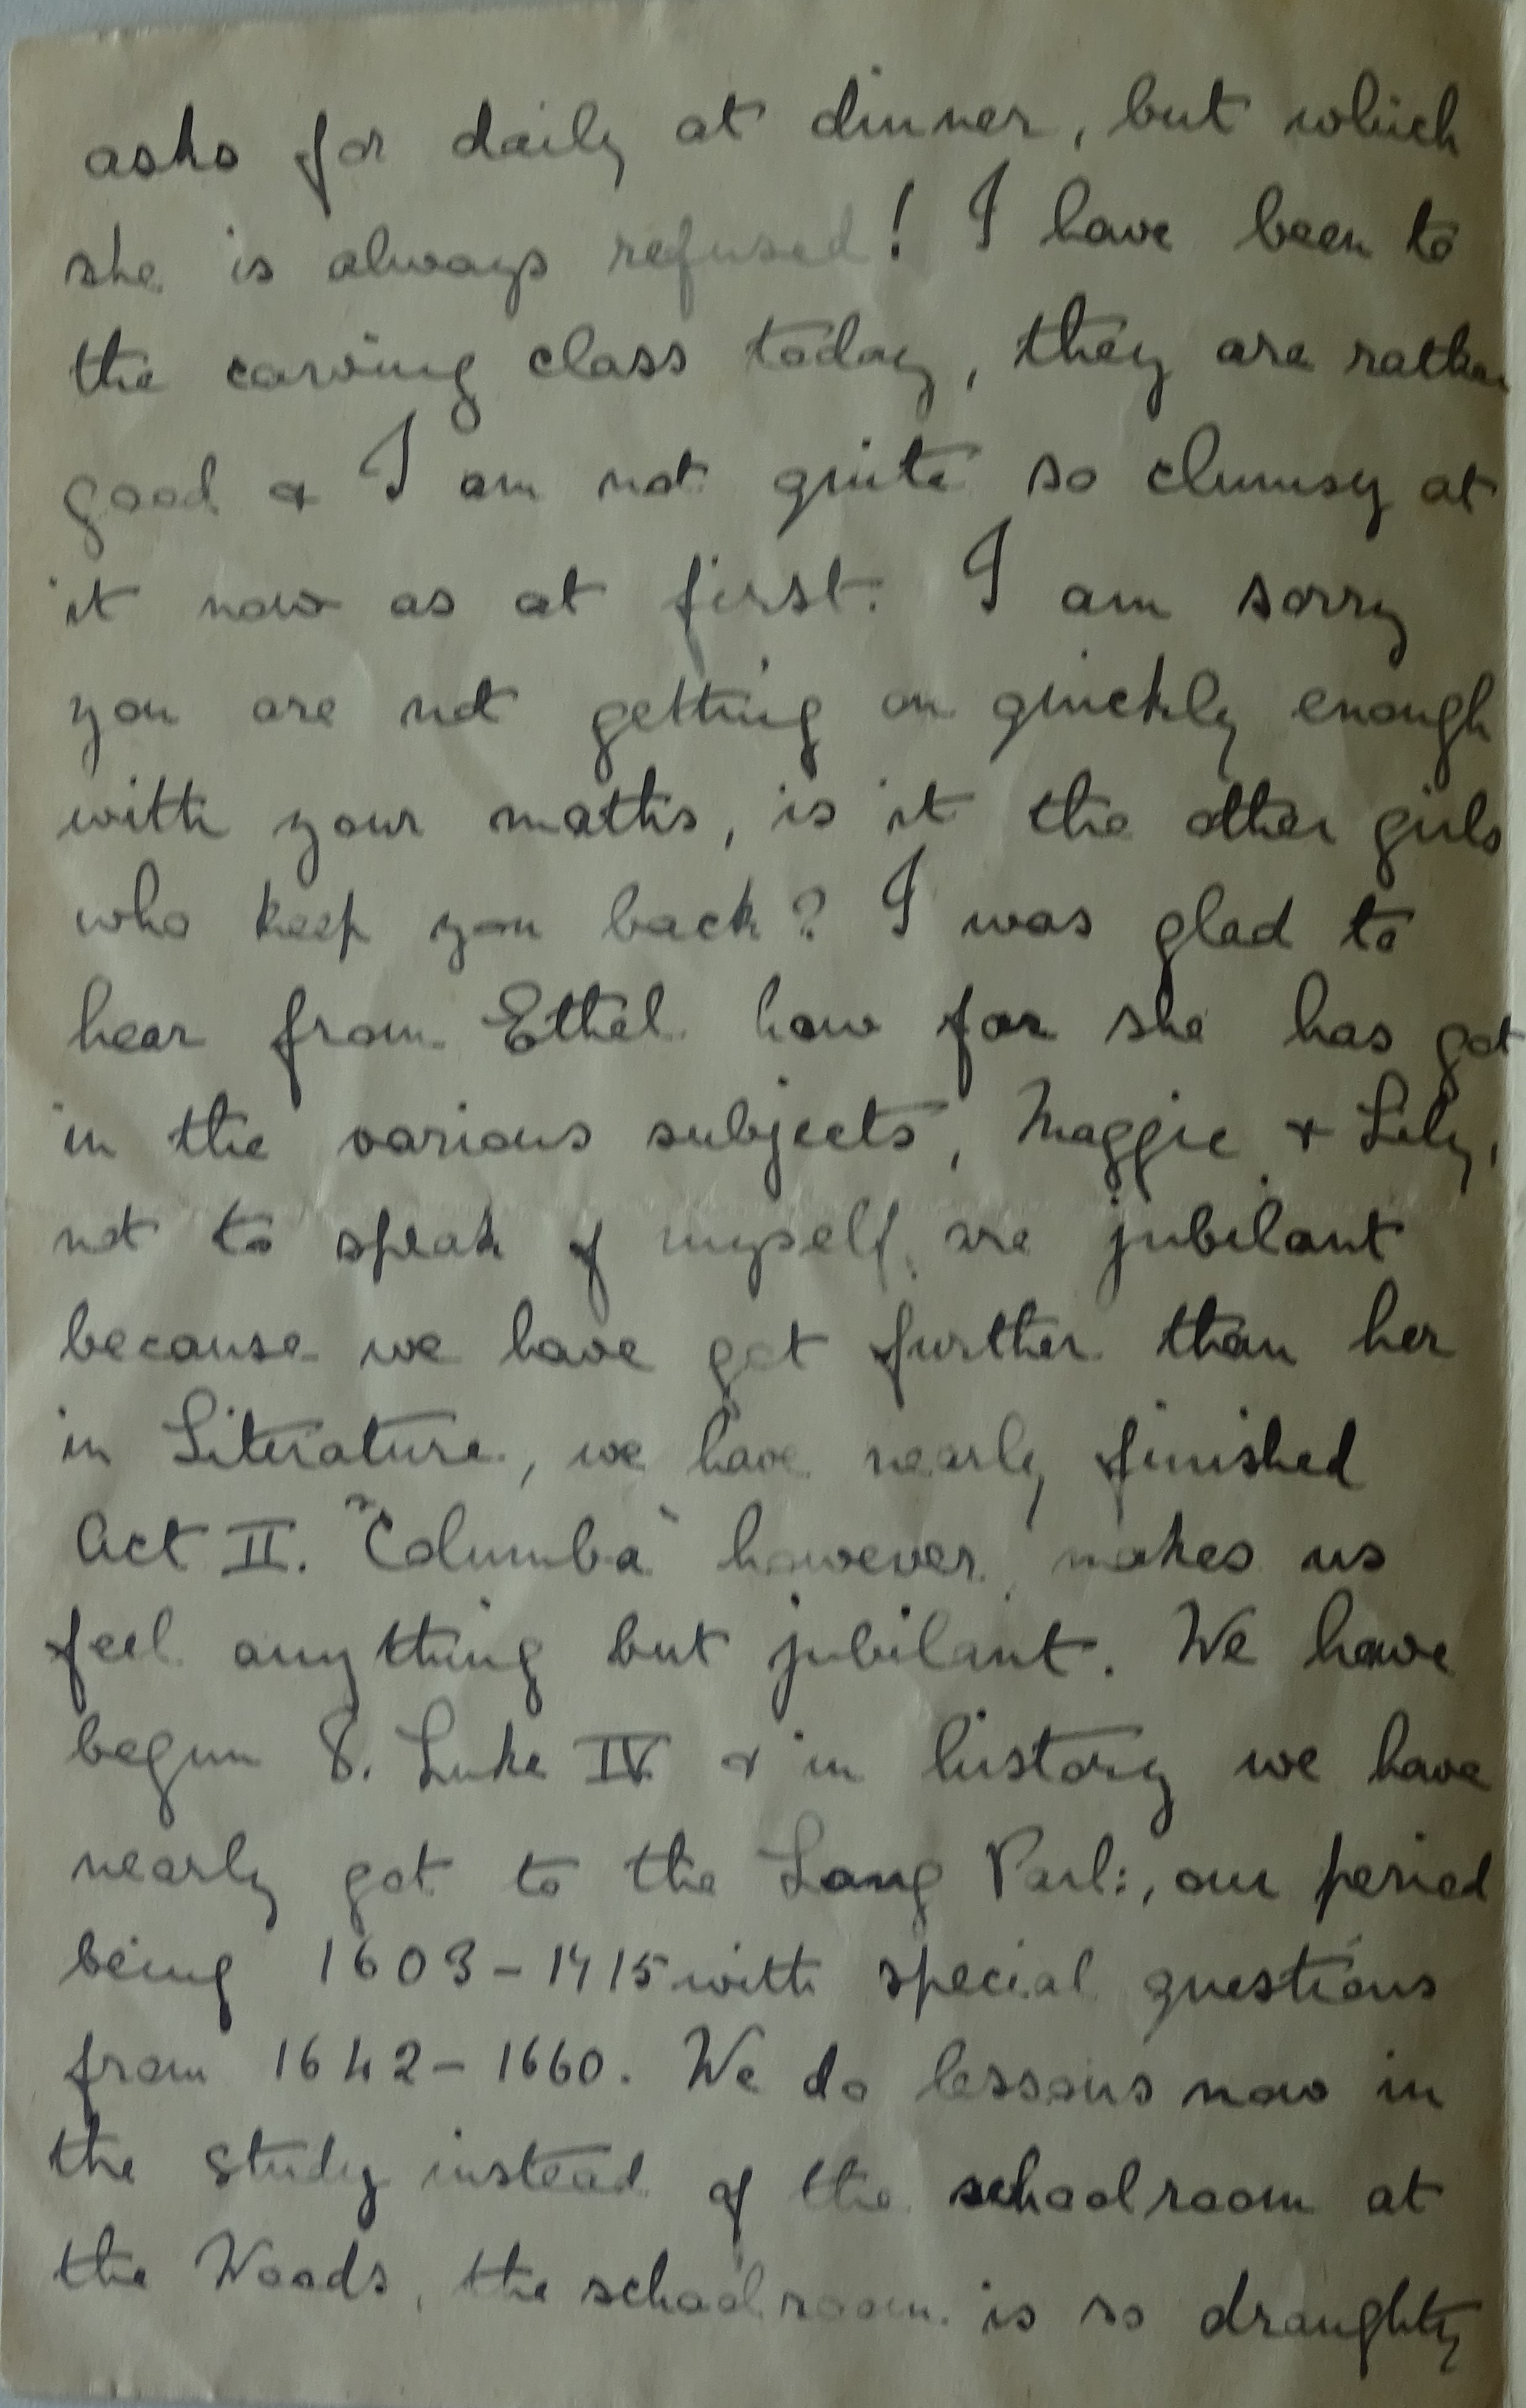 asks for daily at dinner, but which
she is always refused! I have been to
the carving class today, they are rather
good & I am not quite so clumsy at
it now as at first. I am sorry
you are not getting on quickly enough
with your maths, is it the other girls
who keep you back? I was glad to
hear from Ethel how far she has got
in the various subjects, Maggie & Lily,
not to speak of myself, are jubilant
because we have got further than her
in Literature, we have nearly finished
Act II. "Columba" however, makes us
feel anything but jubilant. We have
begun S. Luke IV & in history we have
nearly got to the Long Parl:, our period
being 1603-1715 with special questions
from 1642-1660. We do lessons now in
the study instead of the schoolroom at
the Woods, the schoolroom is so draughty